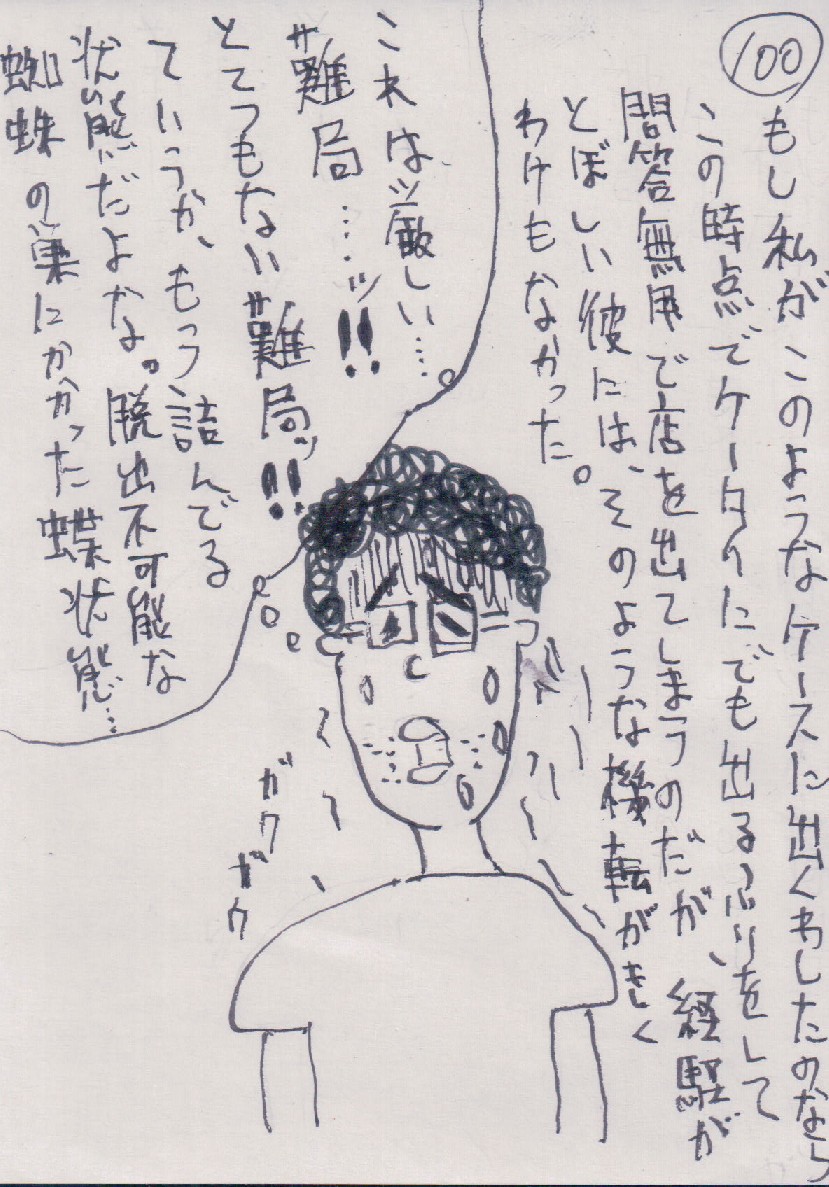 100
もし私がこのようなケースに出くわしたのなら
この時点でケータイにでも出るふりをして
問答無用で店を出てしまうのだが、経験が
とぼしい彼には、そのような機転がきく
わけもなかった。
これは厳しい…
難局…ッ!!
とてつもない難局ッ!!
ていうか、もう詰んでる
状態だよな。脱出不可能な
蜘蛛の巣にかかった蝶状態…
ガクガク